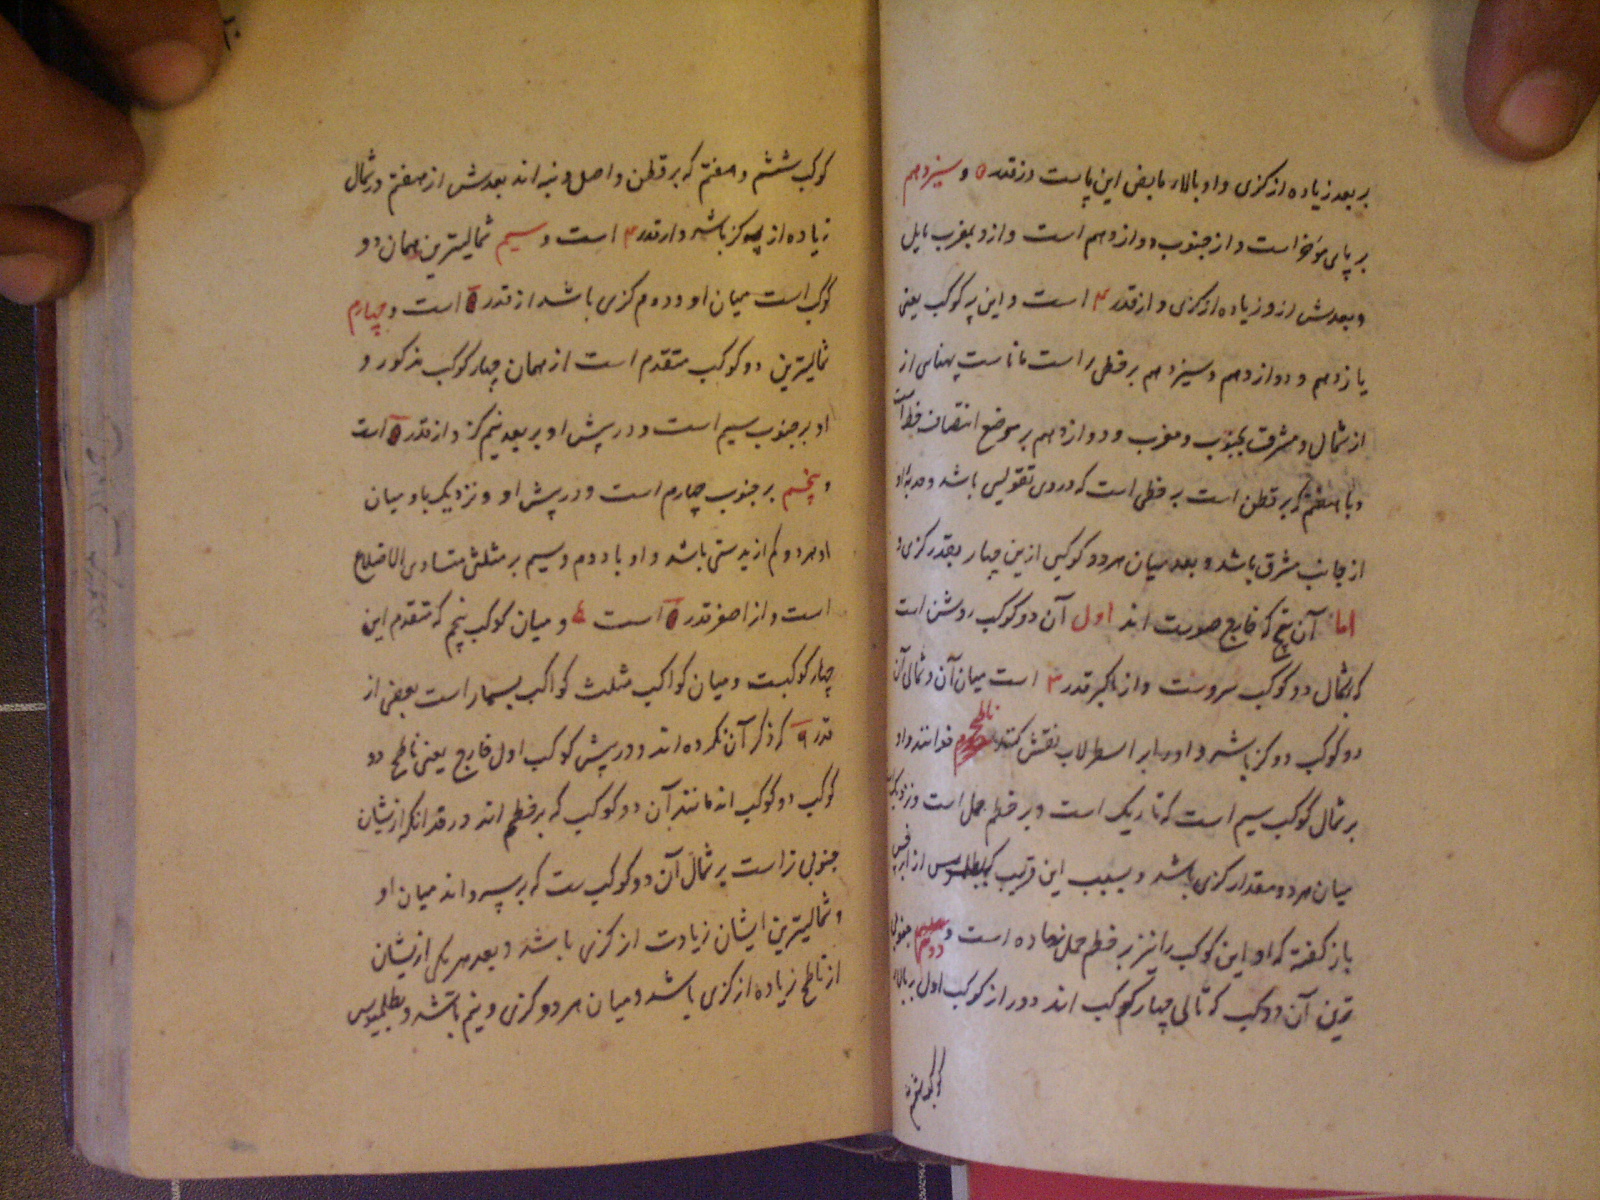 بر بعد زیاده از کزی و او بالاء مابض این پاست و از قدر ۵ و سیزدهم
بر پای مؤخر است و از جنوب دوازدهم است و ازو بمغرب مایل
و بعدش ازو زیاده از کزی و از قدر ۴ است و این سه کوکب یعنی
یازدهم و دوازدهم و سیزدهم بر خطی راست مانا ست پهناس از
از شمال و مشرق بجنوب و مغرب و دوازدهم بر موضع انتصاف خط است
و با هفتم که بر قطن است بر خطی است که دروی تقویس باشد و حدبهٔ او
از جانب مشرق باشد و بعد میان هر دو کوکبی ازین چهار بقدر کزی و
اما آن پنج که خارج صورت اند اول آن دو کوکب روشن است
که بشمال دو کوکب سروست و از اکبر قدر ۳ است میان آن و شمالی آن
دو کوکب دو کز باشد و او را بر اسطرلاب نقش کنند ناطح خوانند و او
بر شمال کوکب سیم است که تاریک است و بر خطم حمل است و نزدیک
میان هر دو مقدار کزی باشد و بسبب این قریب که بطلمیوس از ابرخس
باز کفته که او این کوکب را نیز بر خطم حمل نهاده است و دوم جنوبی
ترین آن دو کوکب که تالی چهار کوکب اند دور از کوکب اول بر بالاء
کوکب ششم و هفتم که بر قطن و اصل دنبه اند بعدش از هفتم در شمال
زیاده از سه کز باشد و از قدر ۴ است و سیم شمالیترین همان دو
کوکب است میان او و دوم کزی باشد از قدر ۵ است و چهارم
شمالیترین دو کوکب متقدم است از همان چهار کوکب مذکور و
او بر جنوب سیم است و در پیش او بر بعد نیم کز و از قدر ۵ است
و پنجم بر جنوب چهارم است و در پیش او و نزدیک باو میان
او هر دو کم از بدستی باشد و او با دوم و سیم بر مثلثی متساوی الاضلاع
است و از اصغر قدر ۵ است و میان کوکب پنجم که متقدم این
چهار کوکبست و میان کواکب مثلث کواکب بسیار است بعضی از
قدر ۶ که ذکر آن نکرده اند و در پیش کوکب اول خارج یعنی ناطح دو
کوکب دو کوکب اند مانند آن دو کوکب که بر خطم اند در قدر انکه از یشان
جنوبی تر است بر شمال آن دو کوکب ست که بر سر و اند میان او
و شمالیترین ایشان زیادت از کزی باشد و بعد هر یکی از یشان
از ناطح زیاده از کزی باشد و میان هر دو کزی و نیم باشد و بطلمیوس